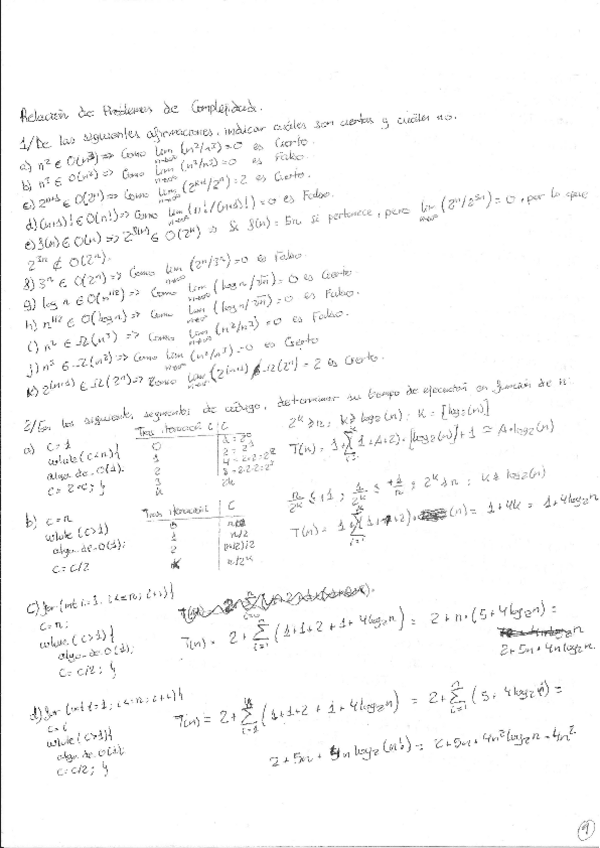 Relación de Problemas de Complejidad.
1/De las siguientes afirmaciones, indicar cuáles son ciertas y cuáles no.
a) n² ∈ O(n³) => Como lim n→∞ (n²/n³)=0 es Cierto.
b) n³ ∈ O(n²) => Como lim n→∞ (n²/n³)=0 es Falso.
c) 2ⁿ⁺¹ ∈ O(2ⁿ) => Como lim n→∞ (2ⁿ⁺¹/2ⁿ)=2 es Cierto.
d) (n+1)! ∈ O(n!) => Como lim n→∞ (n!/(n+1)!)=0 es Falso.
e) f(n) ∈ O(n) => 2^f(n) ∈ O(2ⁿ) => Si f(n)=5n si pertenece, pero lim n→∞ (2ⁿ/2⁵ⁿ)=0, por lo que
∉ O(2ⁿ).
f) 3ⁿ ∈ O(2ⁿ) => Como lim n→∞ (2ⁿ/3ⁿ)=0 es Falso.
g) log n ∈ O(n^1/2) => Como lim n→∞ (log n/√n)=0 es Cierto.
h) n^1/2 ∈ O(log n) => Como lim n→∞ (log n/√n)=0 es Falso.
i) n² ∈ Ω(n³) => Como lim n→∞ (n²/n³)=0 es Falso.
j) n³ ∈ Ω(n²) => Como lim n→∞ (n²/n³)=0 es Cierto
k) 2ⁿ⁺¹ ∈ Ω(2ⁿ) => Como lim n→∞ = 2 es Cierto.
2/En los siguientes segmentos de código, determinar su tiempo de ejecución en función de n.
a) c=1
while(c<n){
algo de O(1);
c=2*c; }
Tras iteración C
0 1=2⁰
1 2=2¹
2 4=2·2=2²
3 8=2·2·2=2³
k 2ᵏ
2ᵏ≥n; k≥log₂(n); k=⌈log₂(n)⌉
b) c=n
while(c>1)
algo de O(1);
c=c/2
Tras iteración C
0 n
1 n/2
2 (n/2)/2
k n/2ᵏ
n/2ᵏ ≤ 1; 2ᵏ≥n;
= 1+4k = 1+4log₂n
c) for(int i=1; i<=n; i++){
c=n;
while(c>1){
algo de O(1);
c=c/2; }
T(n)= 2+∑ i=1 n (1+1+2+1+4log₂n) = 2+n·(5+4log₂n)=
2+5n+4n log₂n.
d) for(int i=1; i<=n; i++){
c=i
while(c>1){
algo de O(1);
c=c/2; }
T(n)= 2+∑ i=1 n (1+1+2+1+4log₂n) = 2+∑ i=1 n (5+4log₂i)=
1